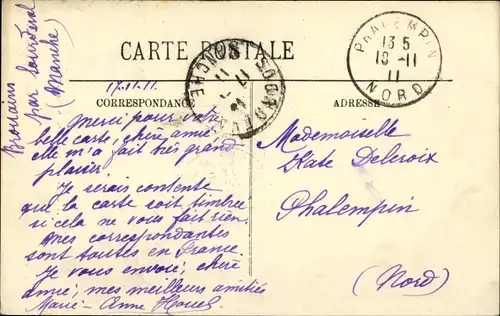 Brouains
par Sourdeval
(Manche)
CARTE POSTALE
PHALEMPIN
13 5
18 -11
11
NORD
17.11.11.
SOURDEVAL
MANCHE
CORRESPONDANCE
ADRESSE
Merci pour votre
belle carte, chère amie
elle m'a fait très grand
plaisir.
Je serais contente
que la carte soit timbrée
si cela ne vous fait rien.
Mes correspondantes
sont toutes en France.
Je vous envoie, chère
amie, mes meilleurs amitiés
Marie-Anne
Mademoiselle
Kate Delcroix
Phalempin
(Nord)